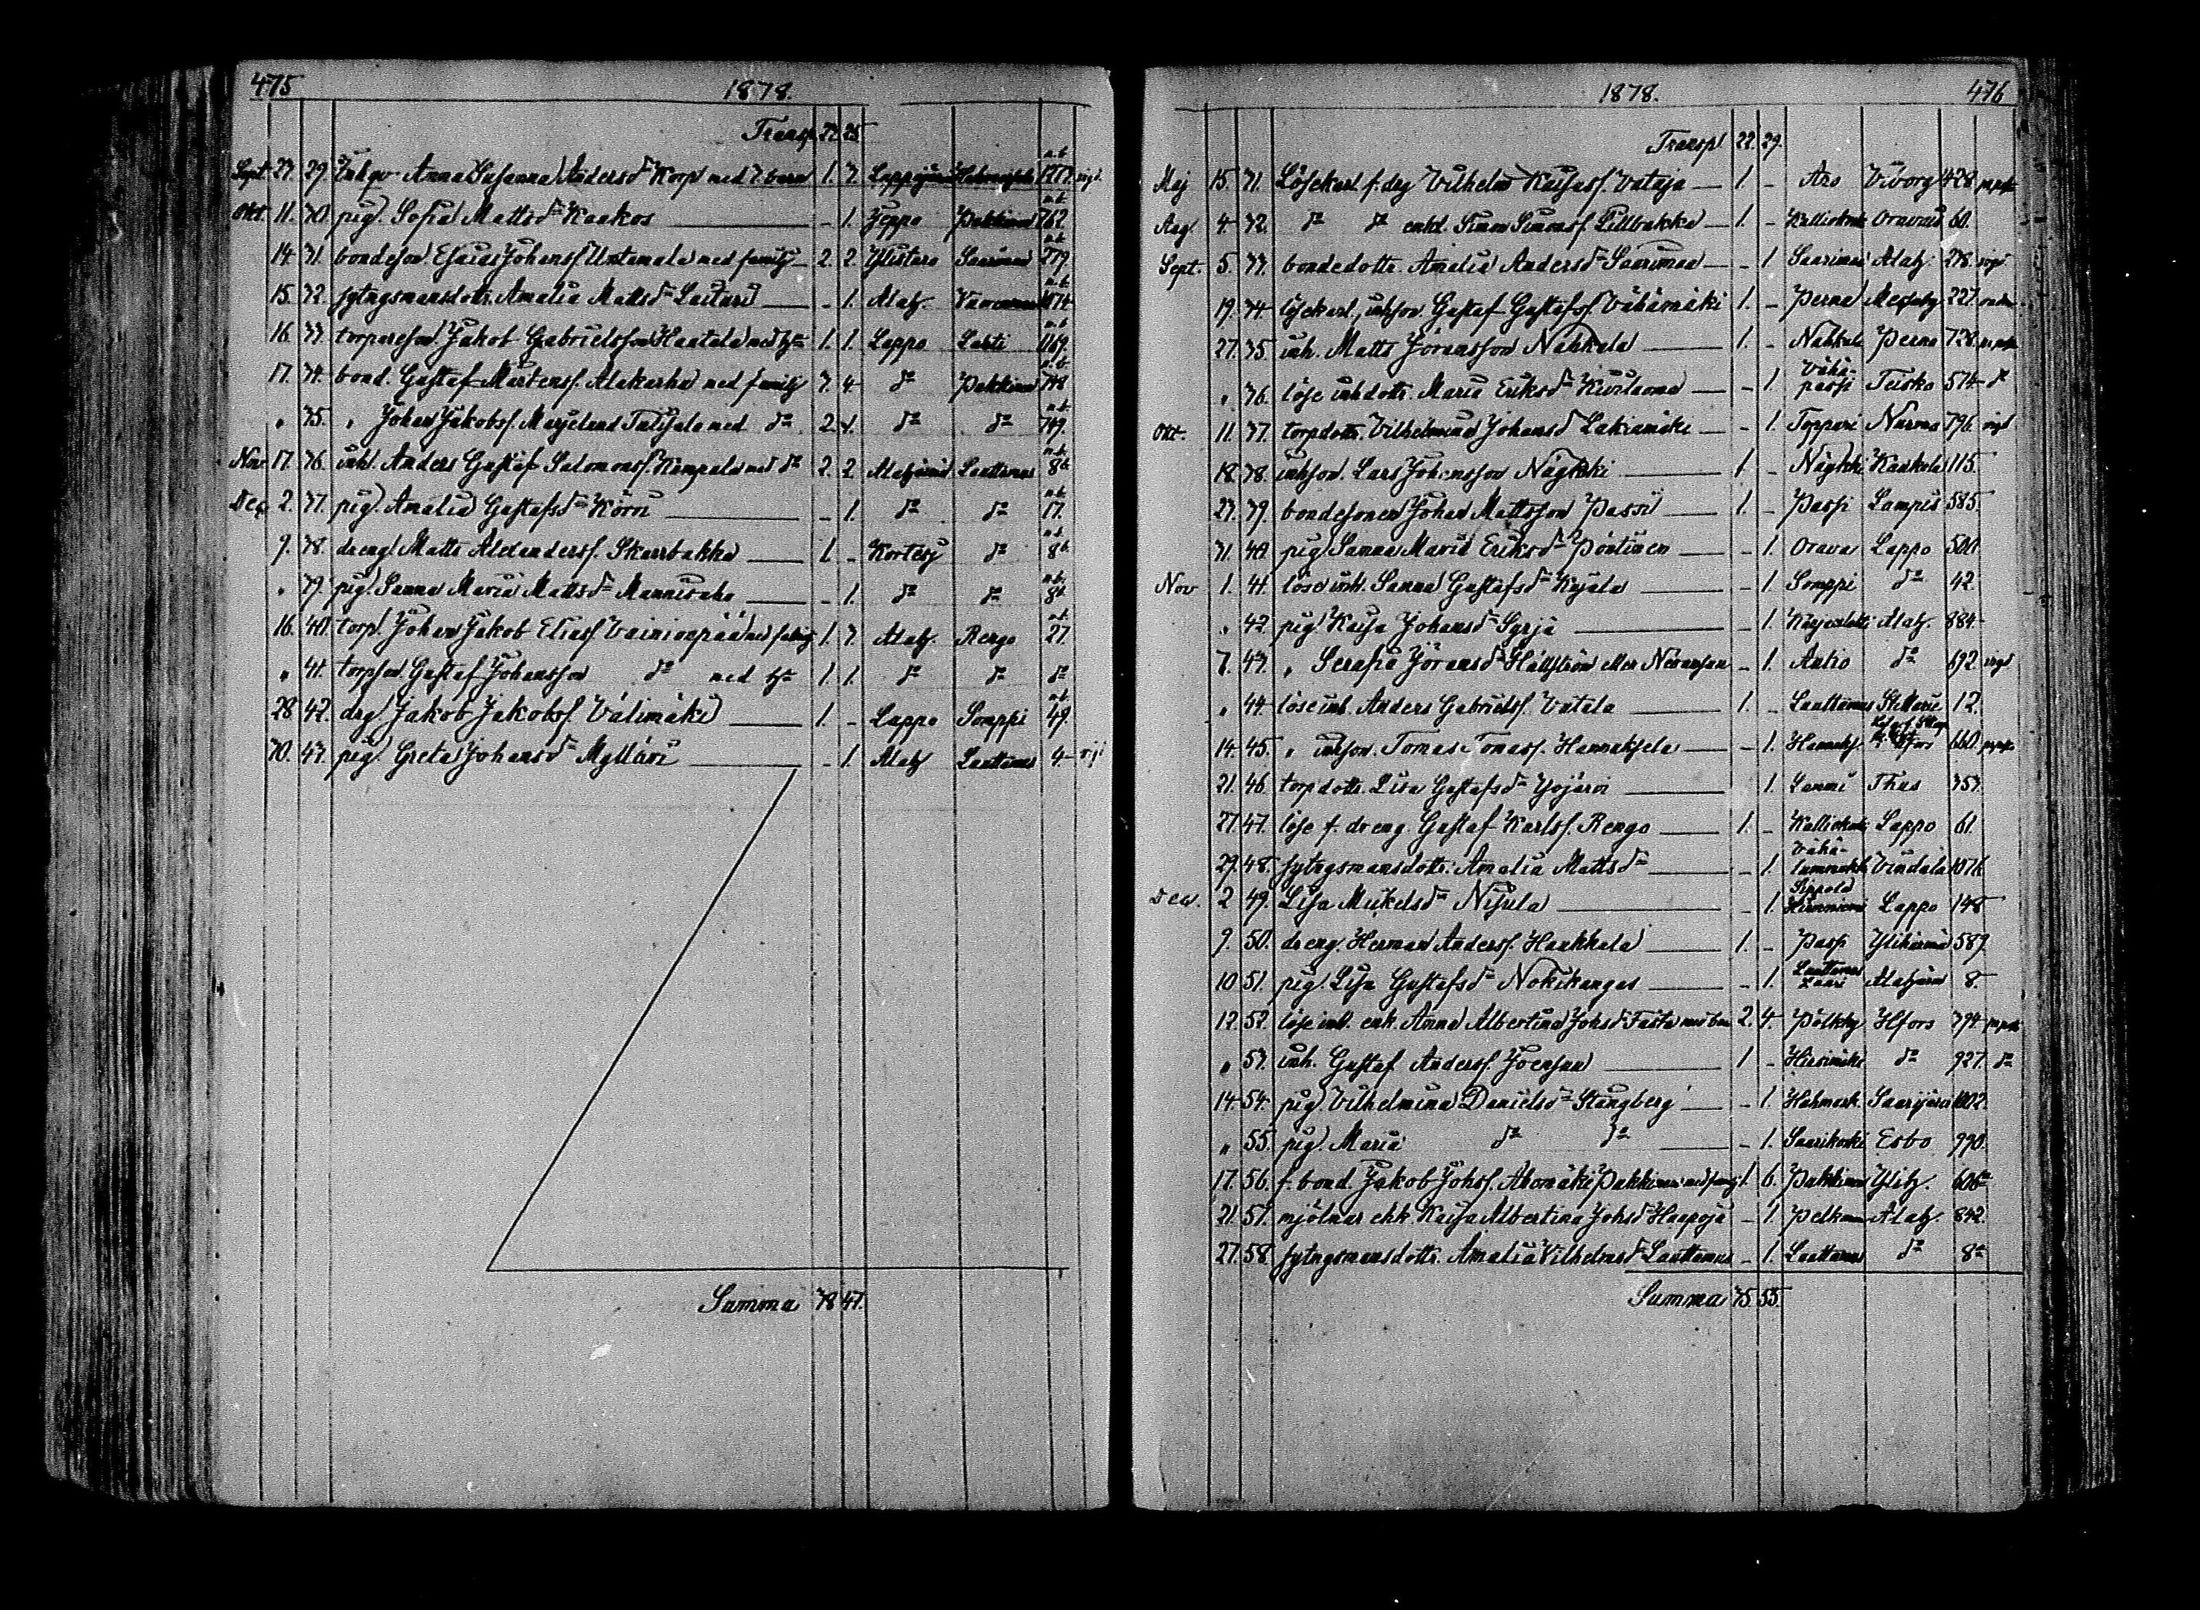 475 1878.
Transp. 22. 25.
Sept. 27. 29. Enkan Anna Susanna Andersd:r Korpi med 2 barn 1. 3. Lappajärvi
Okt. 11. 30. pig. Sofia Mattsd:r Kaakos – 1. Jeppo 762.
14. 31. bondeson Esaias Johanss. Untamala med familj 2. 2. Ylistaro Saarimaa 279.
15. 32. sytngsmansdottr. Amalia Mattsd:r Laituri – 1. Alahj.
16. 33. torpareson Jakob Gabrielsson Haatala med h:u 1. 1. Lappo Lahti 1169.
17. 34. bond. Gustaf Mårtenss. Alakarha med familj 3. 4. d:o 748
„ 35. „ Johan Jakobss. med d:o 2. 1. d:o d:o 749.
Nov. 17. 36. inh. Anders Gustaf Salomonss. Kempala med d:o 2. 2. Alahärmä Lauttamus 8b
Dec. 2. 37. pig. Amalia Gustafsd:r Körri – 1. d:o d:o 17.
9. 38. dreng Matts Alexanderss. Skarrbakka 1. – Kortesj. d:o 8b
„ 39. pig. Sanna Maria Mattsd:r Mannisaho – 1. d:o d:o 8b
16. 40. torp. Johan Jakob Eliass. Vainionpää med familj 1. 3. Alahj. Rengo 27.
„ 41. torpson Gustaf Johansson d:o med h:u 1. 1. d:o d:o d:o
28. 42. drg. Jakob Jakobss. Välimäki 1. – Lappo Somppi 49.
30. 43. pig. Greta Johansd:r Mylläri – 1. Alahj. Lauttamus 4. vigd
Summa 38 47.
1878. 476
Transp. 22. 29.
Maj 15. 31. Lösekarl f. drg Vilhelm Kaisass. Vataja 1. – Aro Viborg 428.
Aug. 4. 32. d:o d:o enkl. Simon Simonss. Lillbakka 1. – Oravais 60.
Sept. 5. 33. bondedottr. Amalia Andersd:r Saarimaa – 1 Saarimaa Alahj. 278. vigd
19. 34. lösekarl, inhson. Gustaf Gustafss. Vähämäki 1. – Perna 227.
27. 35. inh. Matts Göransson Nahkala 1. – Nahkala Perna 728.
„ 36. löse inhdottr. Maria Eriksd:r – 1. Vähä-passi Teisko 574. d:o
Okt. 11. 37. torpdottr. Vilhelmina Johansd:r Lakiamäki – 1. Toppari Nurmo 796. vigd
18. 38. inhson. Lars Johansson Näykki 1. – Näykki Kaukola 115.
27. 39. bondesonen Johan Mattsson Passi 1. – Passi Lampis 585.
31. 40. pig. Sanna Maria Eriksd:r Pöntinen – 1. Orava Lappo 500.
Nov. 1. 41. löse inh. Sanna Gustafsd:r Kujala – 1 Somppi d:o 42.
„ 42. pig. Kaisa Johansd:r Syrjä – 1. Alahj. 884.
7. 43. „ Serafia Göransd:r Hällström eller – 1. Antio d:o 692. vigd
„ 44. löse inh. Anders Gabrielss. Vatala 1. – Lauttamus St Marie 12.
14. 45. „ inhson. Tomas Tomass. Hannuksela – 1. Hannuks. Hfors 660.
21. 46. torpdottr. Lisa Gustafsd:r Yöjärvi 1. Lammi Thus 757.
27. 47. löse f. dreng Gustaf Karlss. Rengo 1. – Lappo 61.
29. 48. sytngsmansdottr. Amalia Mattsd:r – 1. Vindala 1076.
Dec. 2. 49. Lisa Mickelsd:r Nisula – 1. Sippola Lappo 148
9. 50. dreng. Herman Anderss. Haukkala 1. – Passi Ylihärmä 589.
10. 51. pig. Lisa Gustafsd:r Nokikangas – 1. Lauttamus Alahärmä 8.
12. 52. löse inh. enk. Anna Albertina Johsd:r med barn 2. 4. Pölkky Hfors 794.
„ 53. inh. Gustaf Anderss. Joensuu 1 – Hirsimäki d:o 927. d:o
14. 54. pig. Vilhelmina Danielsd:r Stångberg – 1. Hahmark. Saarijärvi 1002.
„ 55. pig. Maria d:o d:o – 1. Saarikoski Esbo 990.
17. 56. f. bond. Jakob Johss. Ahomäki Pakkinen med familj 1. 6. Ylihj. 606
21. 57. mjölnar enk. Kaisa Albertina Johsd:r Haapoja – 1. Alahj. 842.
27. 58. sytngsmansdottr. Amalia Vilhelmsd:r Lauttamus – 1. Lauttamus d:o 8a
Summa 35. 55.